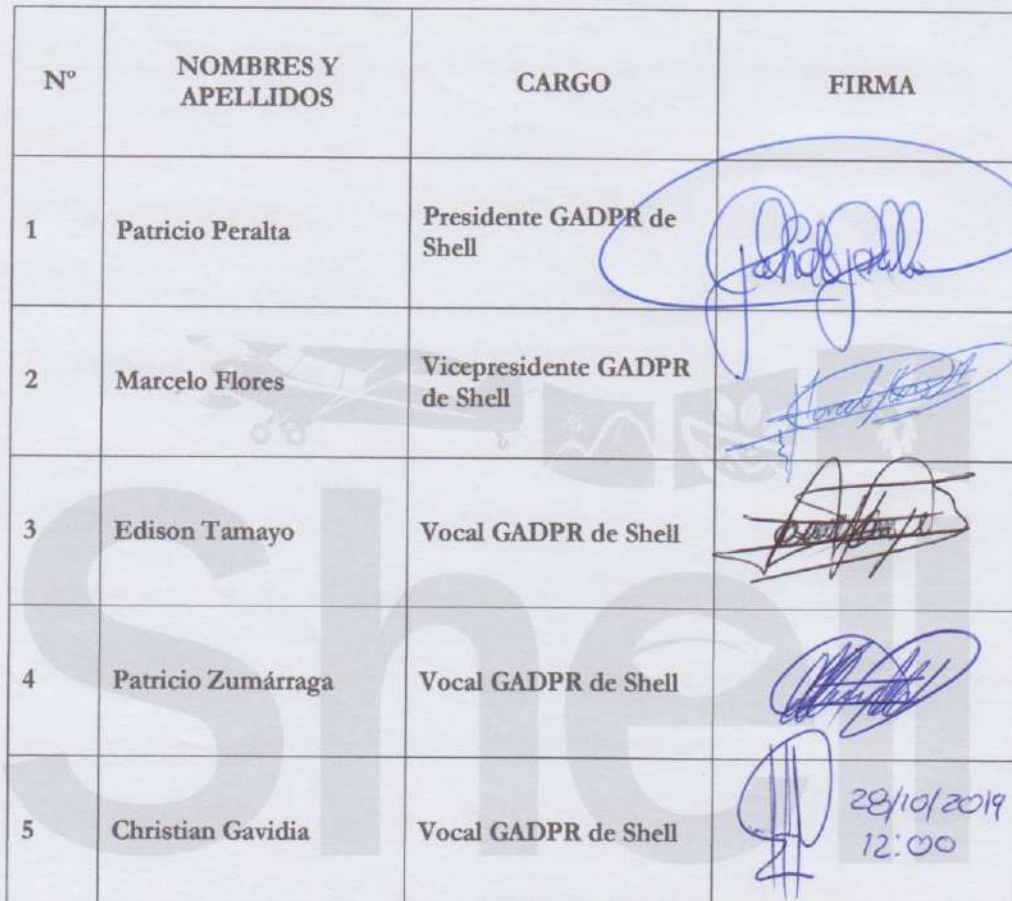 Nº
NOMBRES Y
APELLIDOS
CARGO
FIRMA
1
Patricio Peralta
Presidente GADPR de
Shell
2
Marcelo Flores
Vicepresidente GADPR
de Shell
3
Edison Tamayo
Vocal GADPR de Shell
4
Patricio Zumárraga
Vocal GADPR de Shell
5
Christian Gavidia
Vocal GADPR de Shell
28/10/2019
12:00
Shell